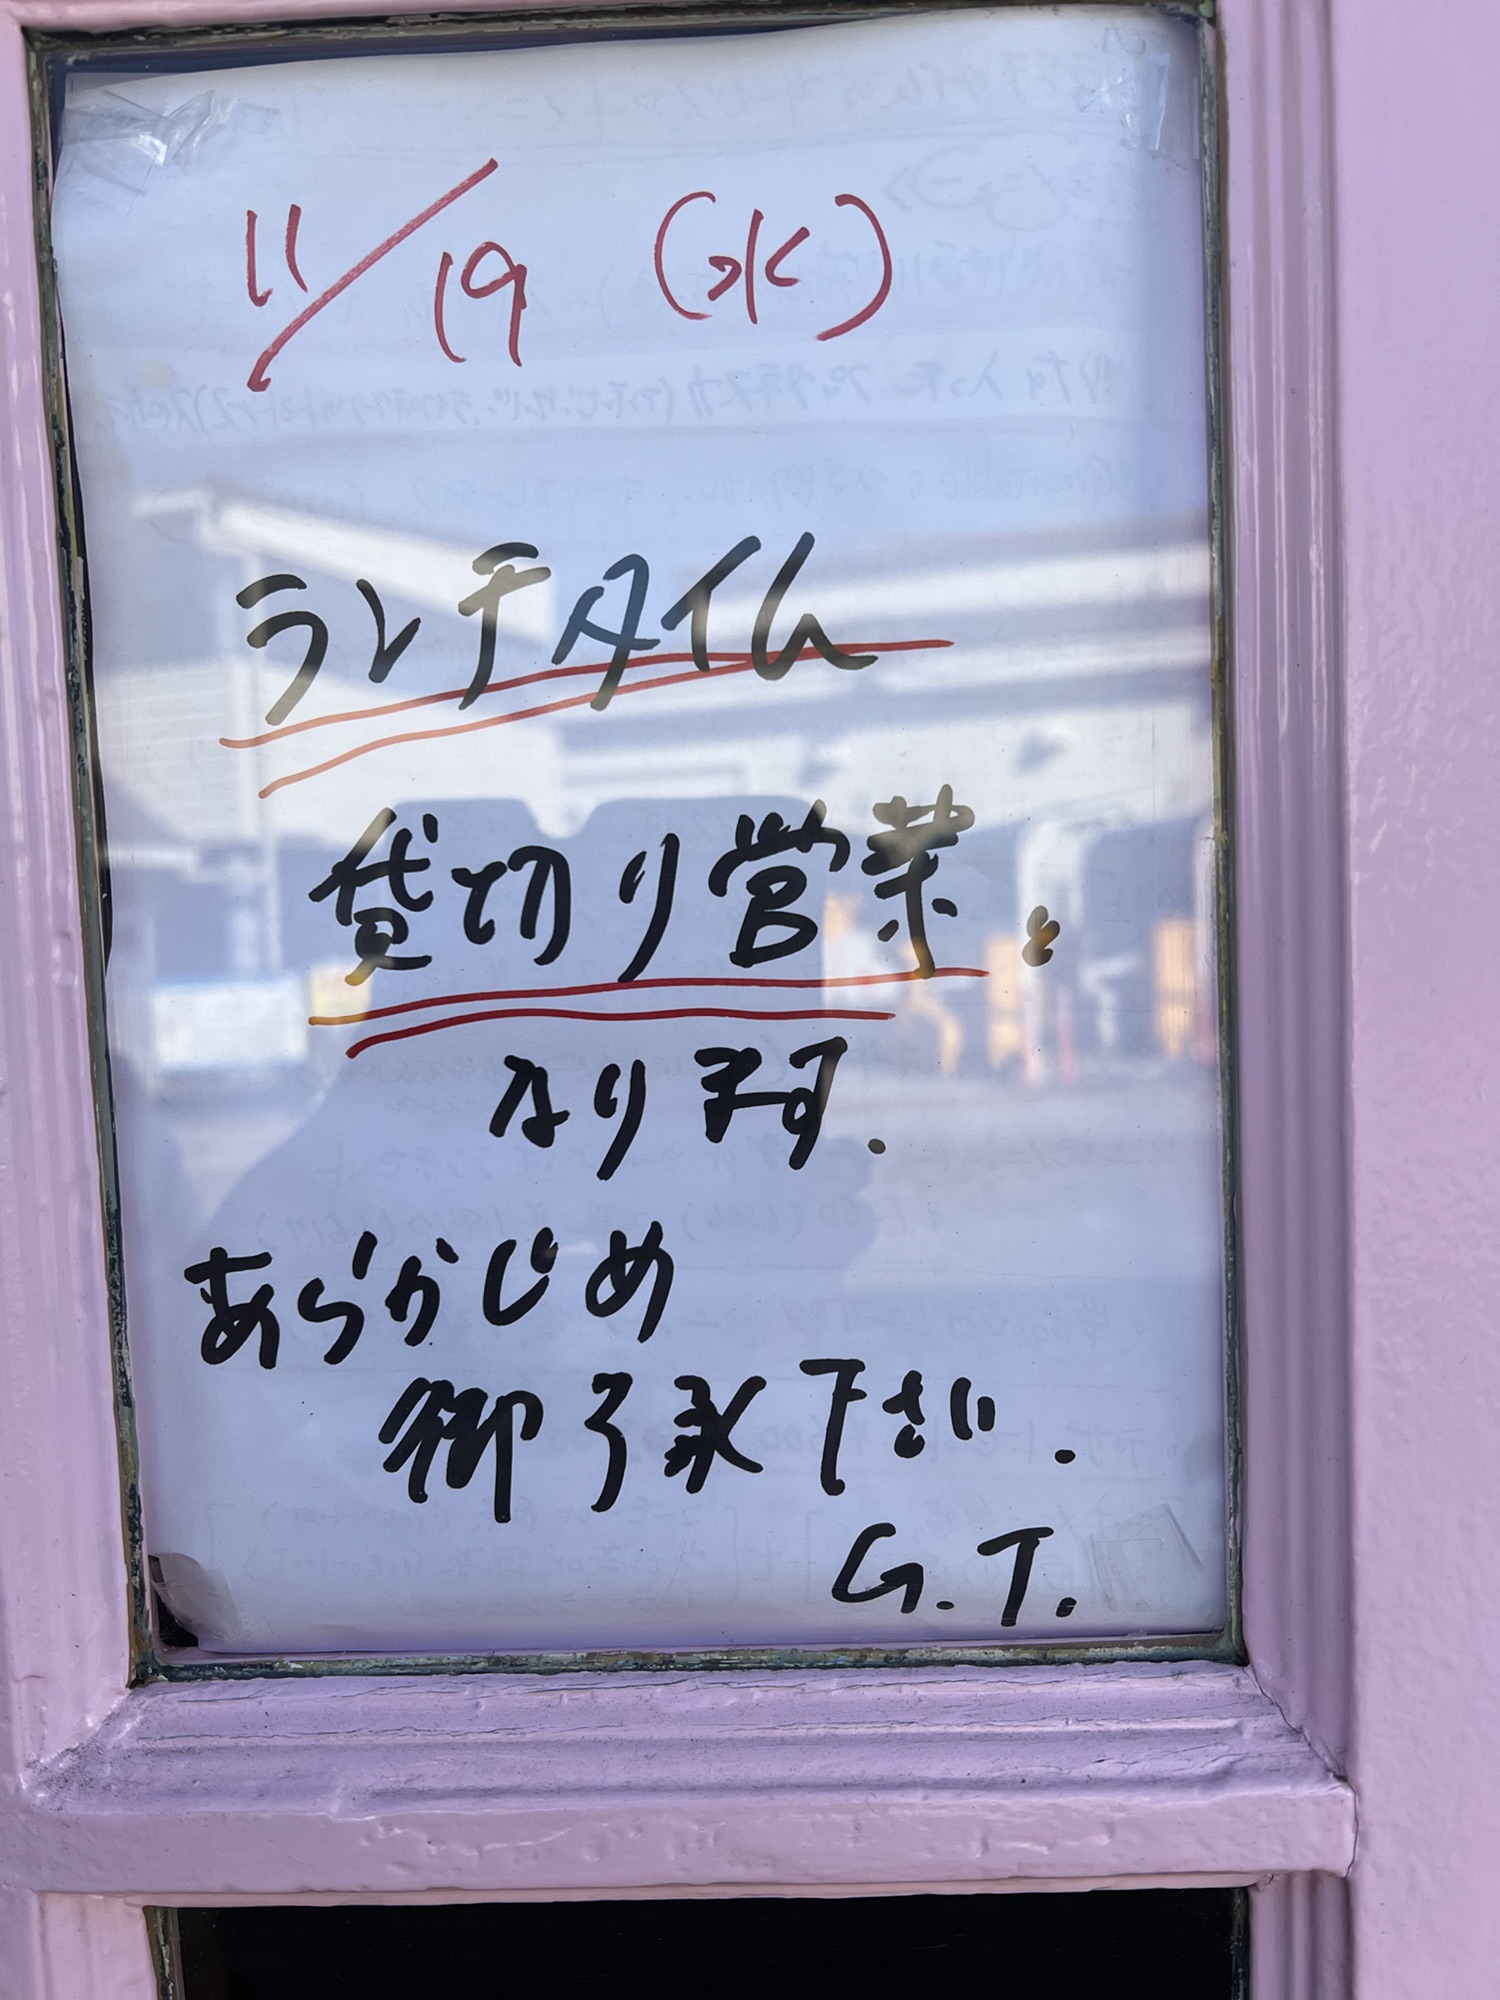 11/19 (水)
ランチタイム
貸切り営業と
なります.
あらかじめ
御了承下さい.
G.T.